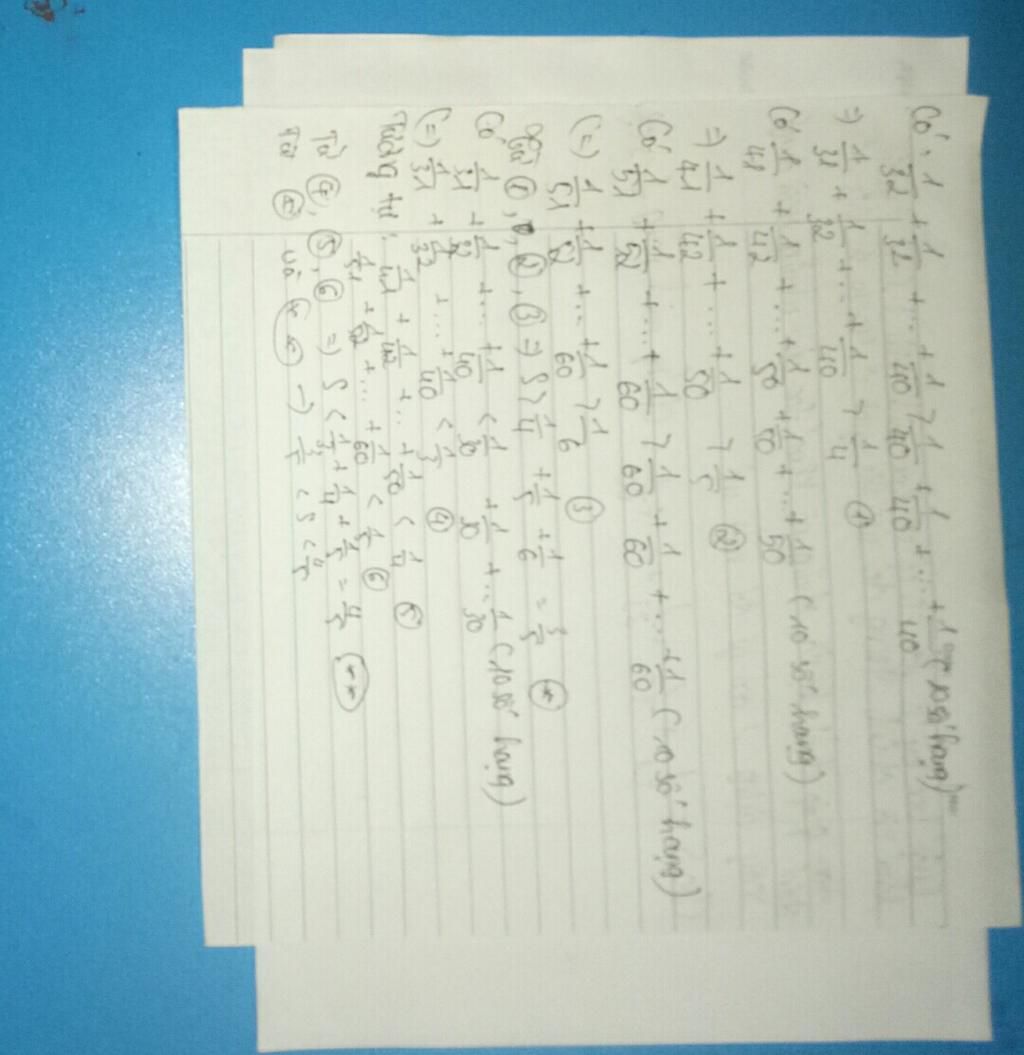 Có: 1/32 + 1/32 + ... + 1/40 > 1/40 + 1/40 + ... + 1/40 (10 số hạng)
=> 1/31 + 1/32 + ... + 1/40 > 1/4 ①
Có 1/41 + 1/42 + ... + 1/50 + 1/50 + ... + 1/50 (10 số hạng)
=> 1/41 + 1/42 + ... + 1/50 > 1/5 ②
Có 1/51 + 1/52 + ... + 1/60 > 1/60 + 1/60 + ... + 1/60 (10 số hạng)
(=) 1/51 + 1/52 + ... + 1/60 > 1/6 ③
Từ ①, ②, ③ => S > 1/4 + 1/5 + 1/6 = 3/5 (*)
Có 1/31 + 1/32 + ... + 1/40 < 1/30 + 1/30 + ... 1/30 (10 số hạng)
(=) 1/31 + 1/32 + ... + 1/40 < 1/3 ④
Tương tự: 1/41 + 1/42 + ... + 1/50 < 1/4 ⑤
1/51 + 1/52 + ... + 1/60 < 1/5 ⑥
Từ ④, ⑤, ⑥ => S < 1/3 + 1/4 + 1/5 = 4/5 (**)
Từ (*) và (**) -> 3/5 < S < 4/5